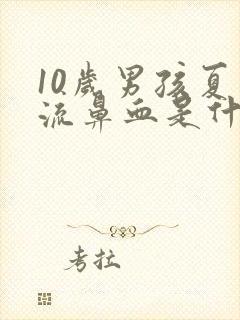 10歲男孩夏
流鼻血是什
考拉